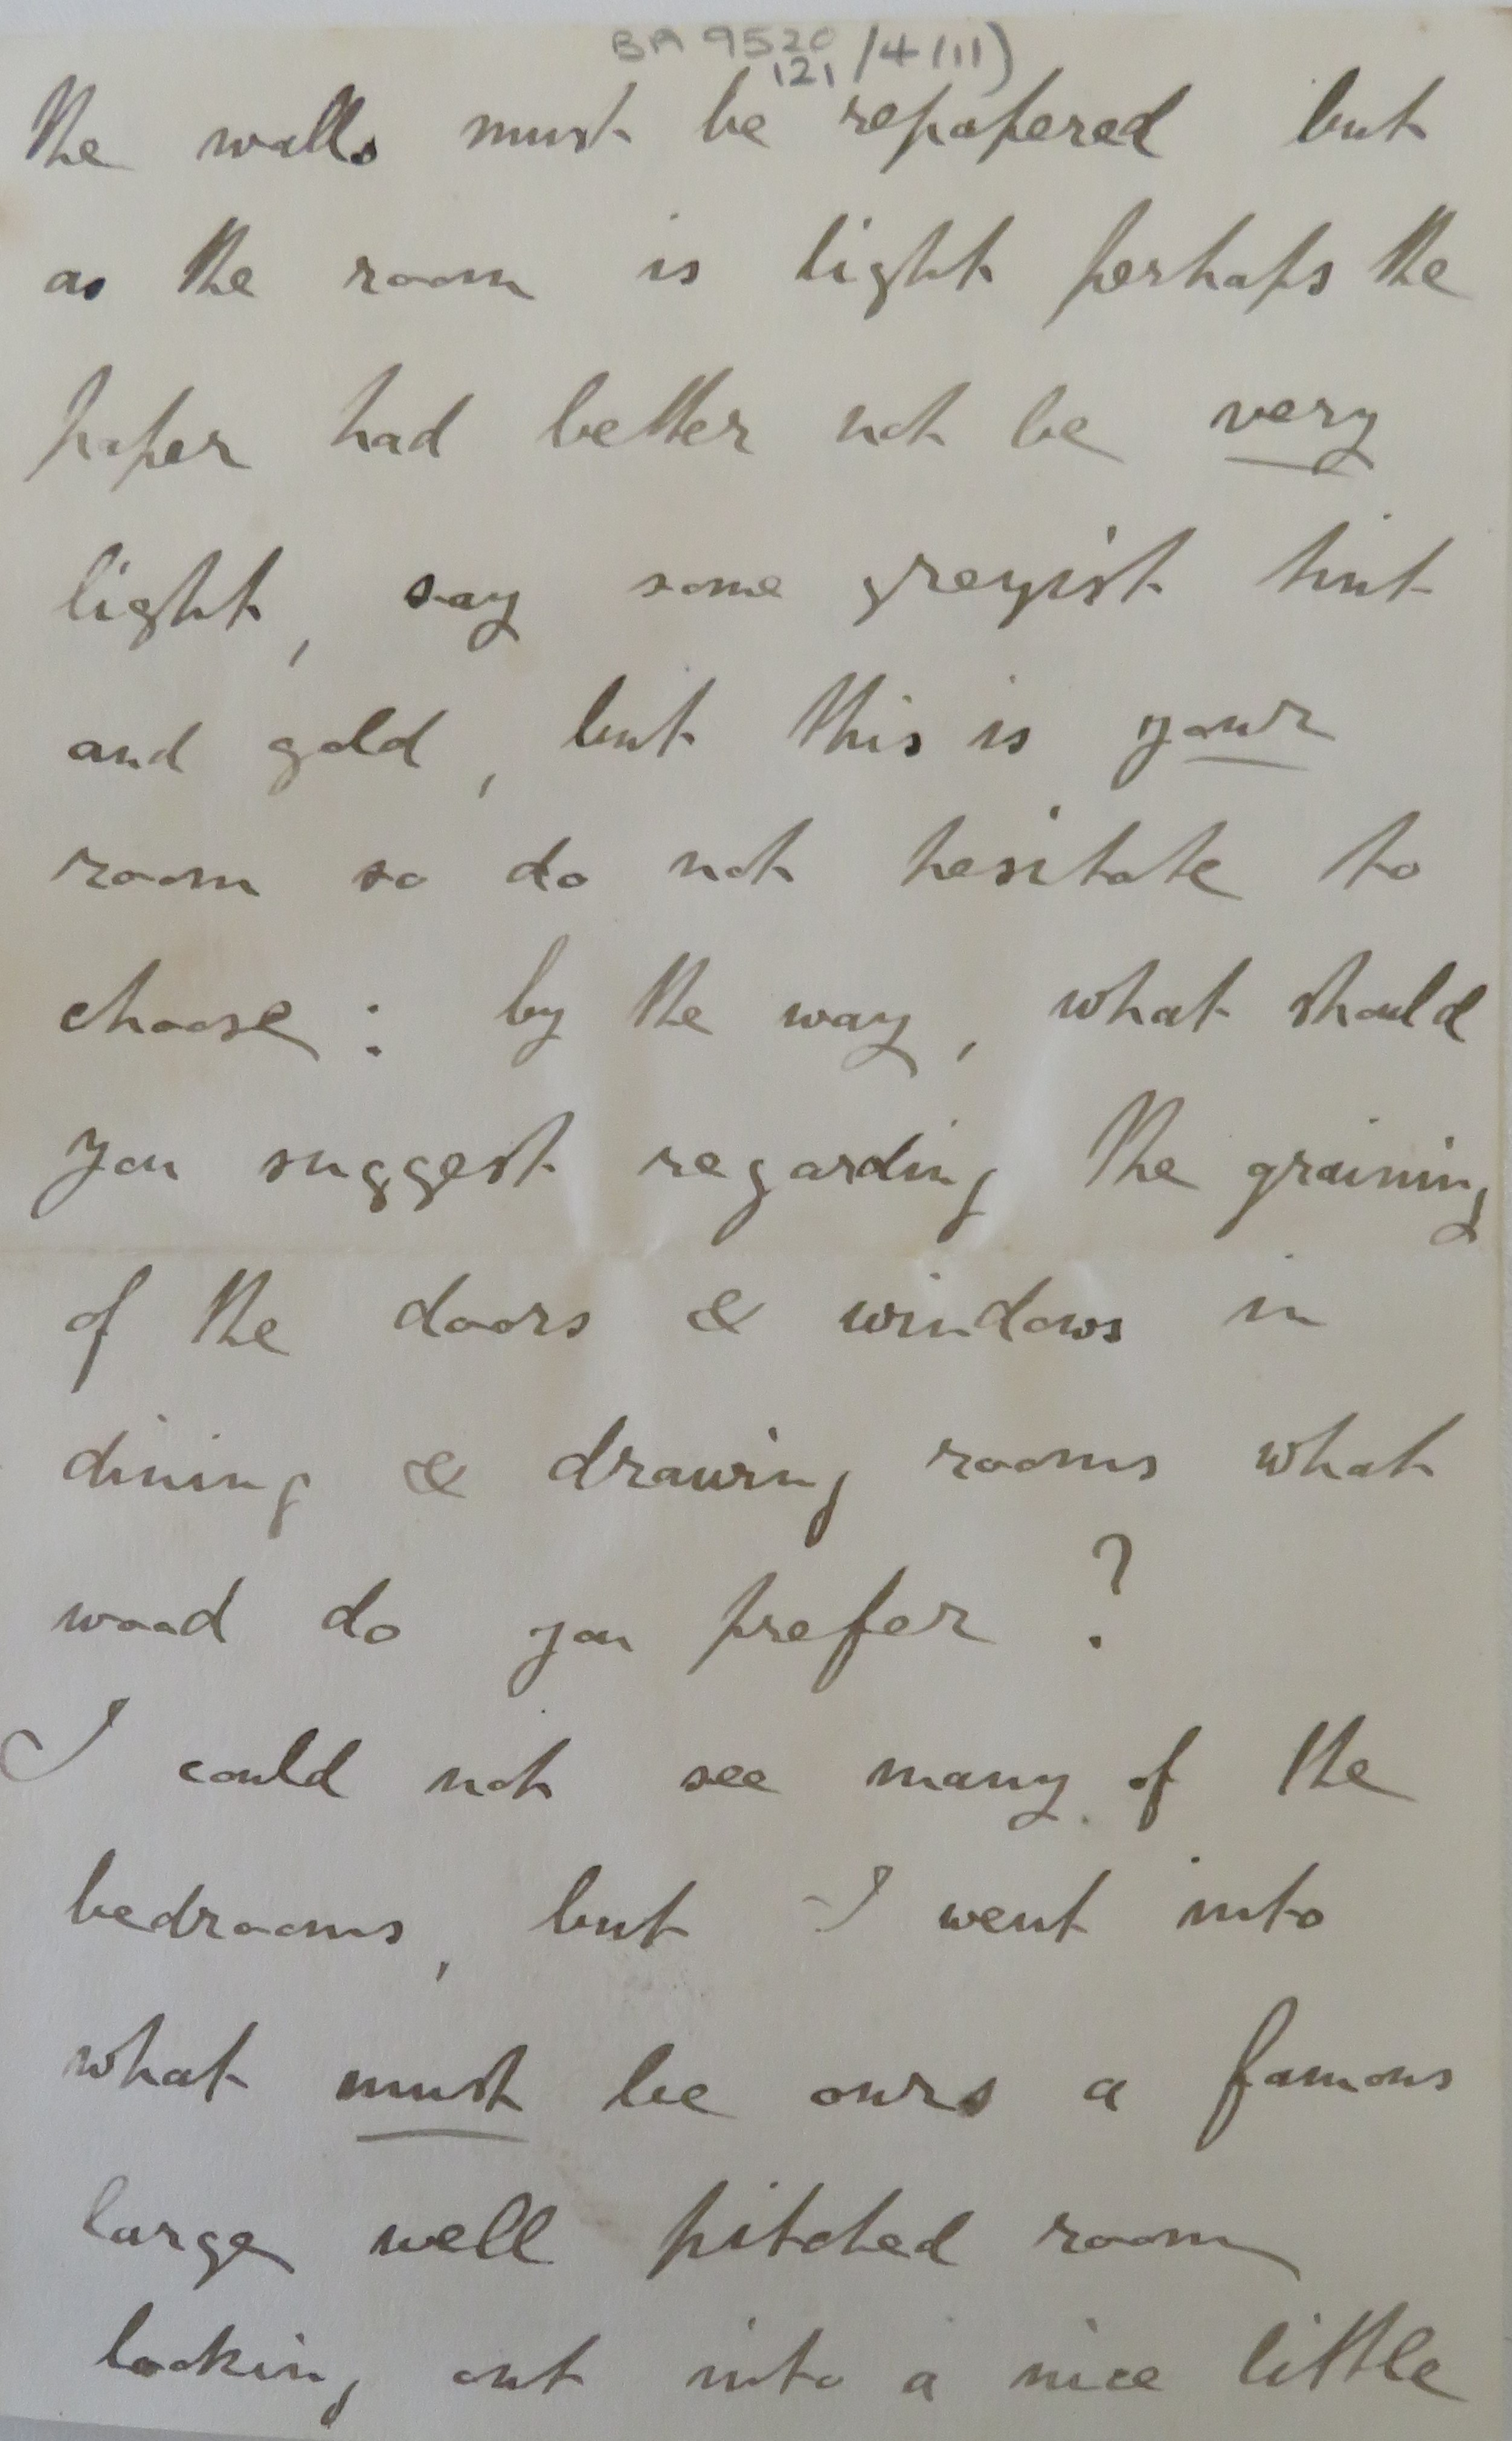 BA 9520/4(11)
121
the walls must be repapered but
as the room is light perhaps the
paper had better not be very
light, say some greyist tint
and gold, but this is your
room so do not hesitate to
choose: by the way, what should
you suggest regarding the graining
of the doors & windows in
dining & drawing rooms what
wood do you prefer?
I could not see many of the
bedrooms, but I went into
what must be ours a famous
large well pitched room
looking out into a nice little